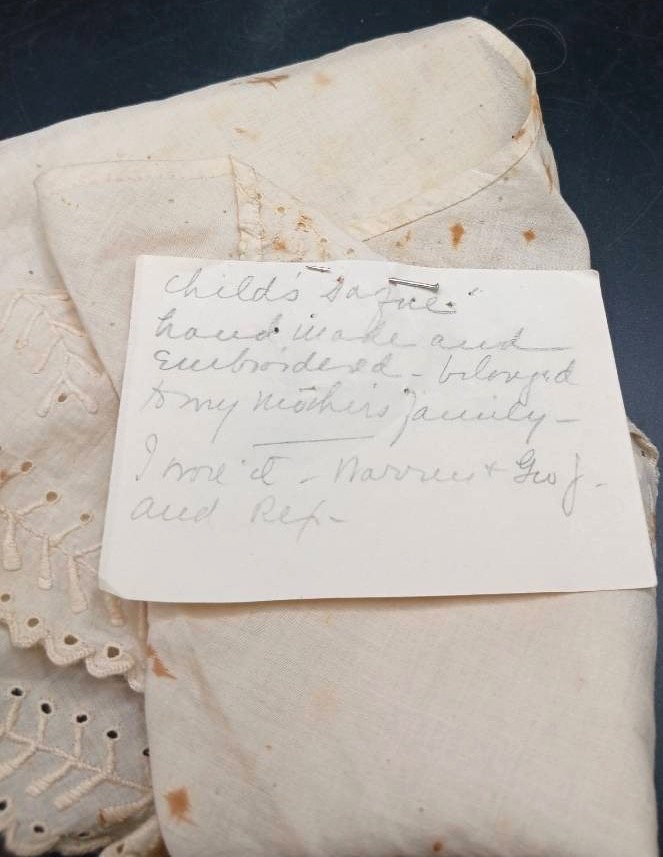 child's saque
hand made and
Embroidered - belonged
to my mother's family -
I wore it - Warren + Geo J.
and Rex -